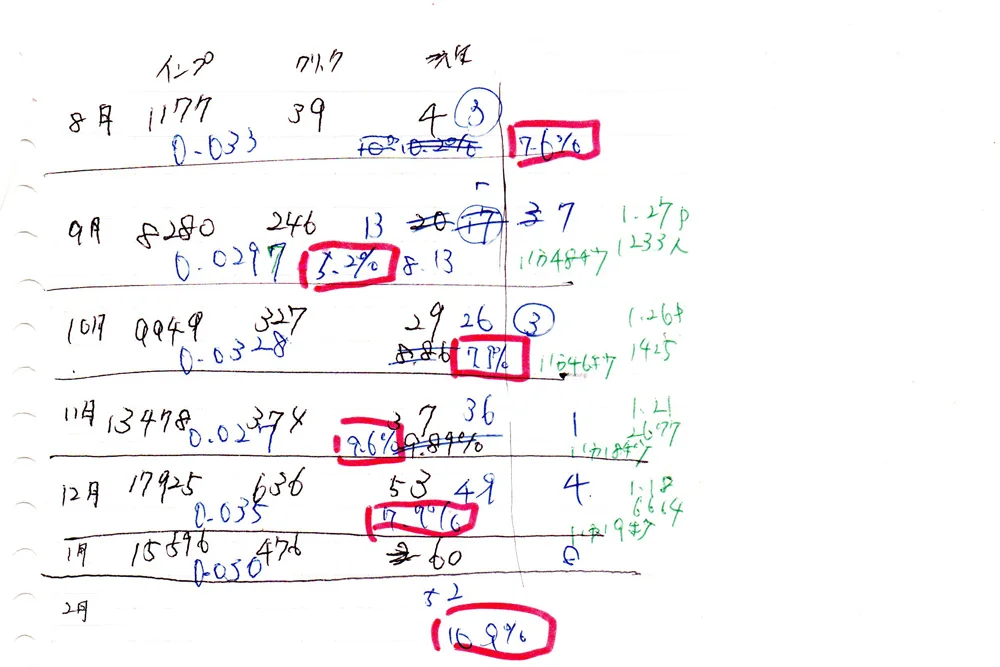 インプ クリック 発注
8月 1177 39 4 3
0.033 10.2% 7.6%
9月 8280 246 13 20 17 3 7 1.27p
0.0297 5.2% 8.13 11万484ウ 1233人
10月 9949 327 29 26 3 1.26p
0.0328 8.86 7.9% 11万465ウ 1425
11月 13478 374 37 36 1 1.21
0.027 9.6% 9.89% 2677
12月 17925 636 53 49 4 1.18
0.035 7.9% 6614
1月 15596 476 60 8
0.030
2月 52
10.9%